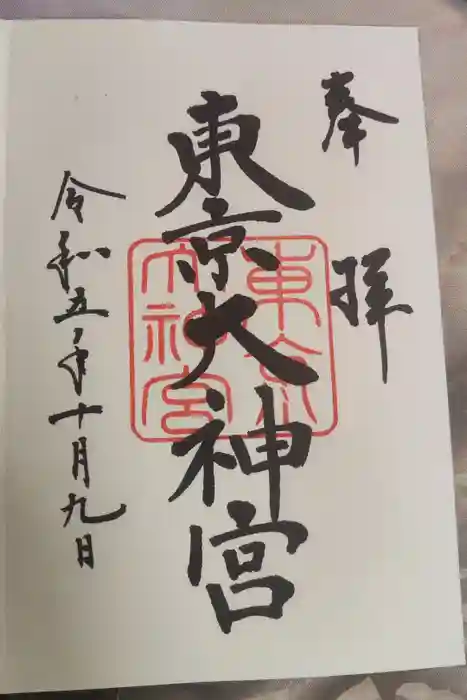 奉拝
東京大神宮
東京大神宮
令和五年十月九日